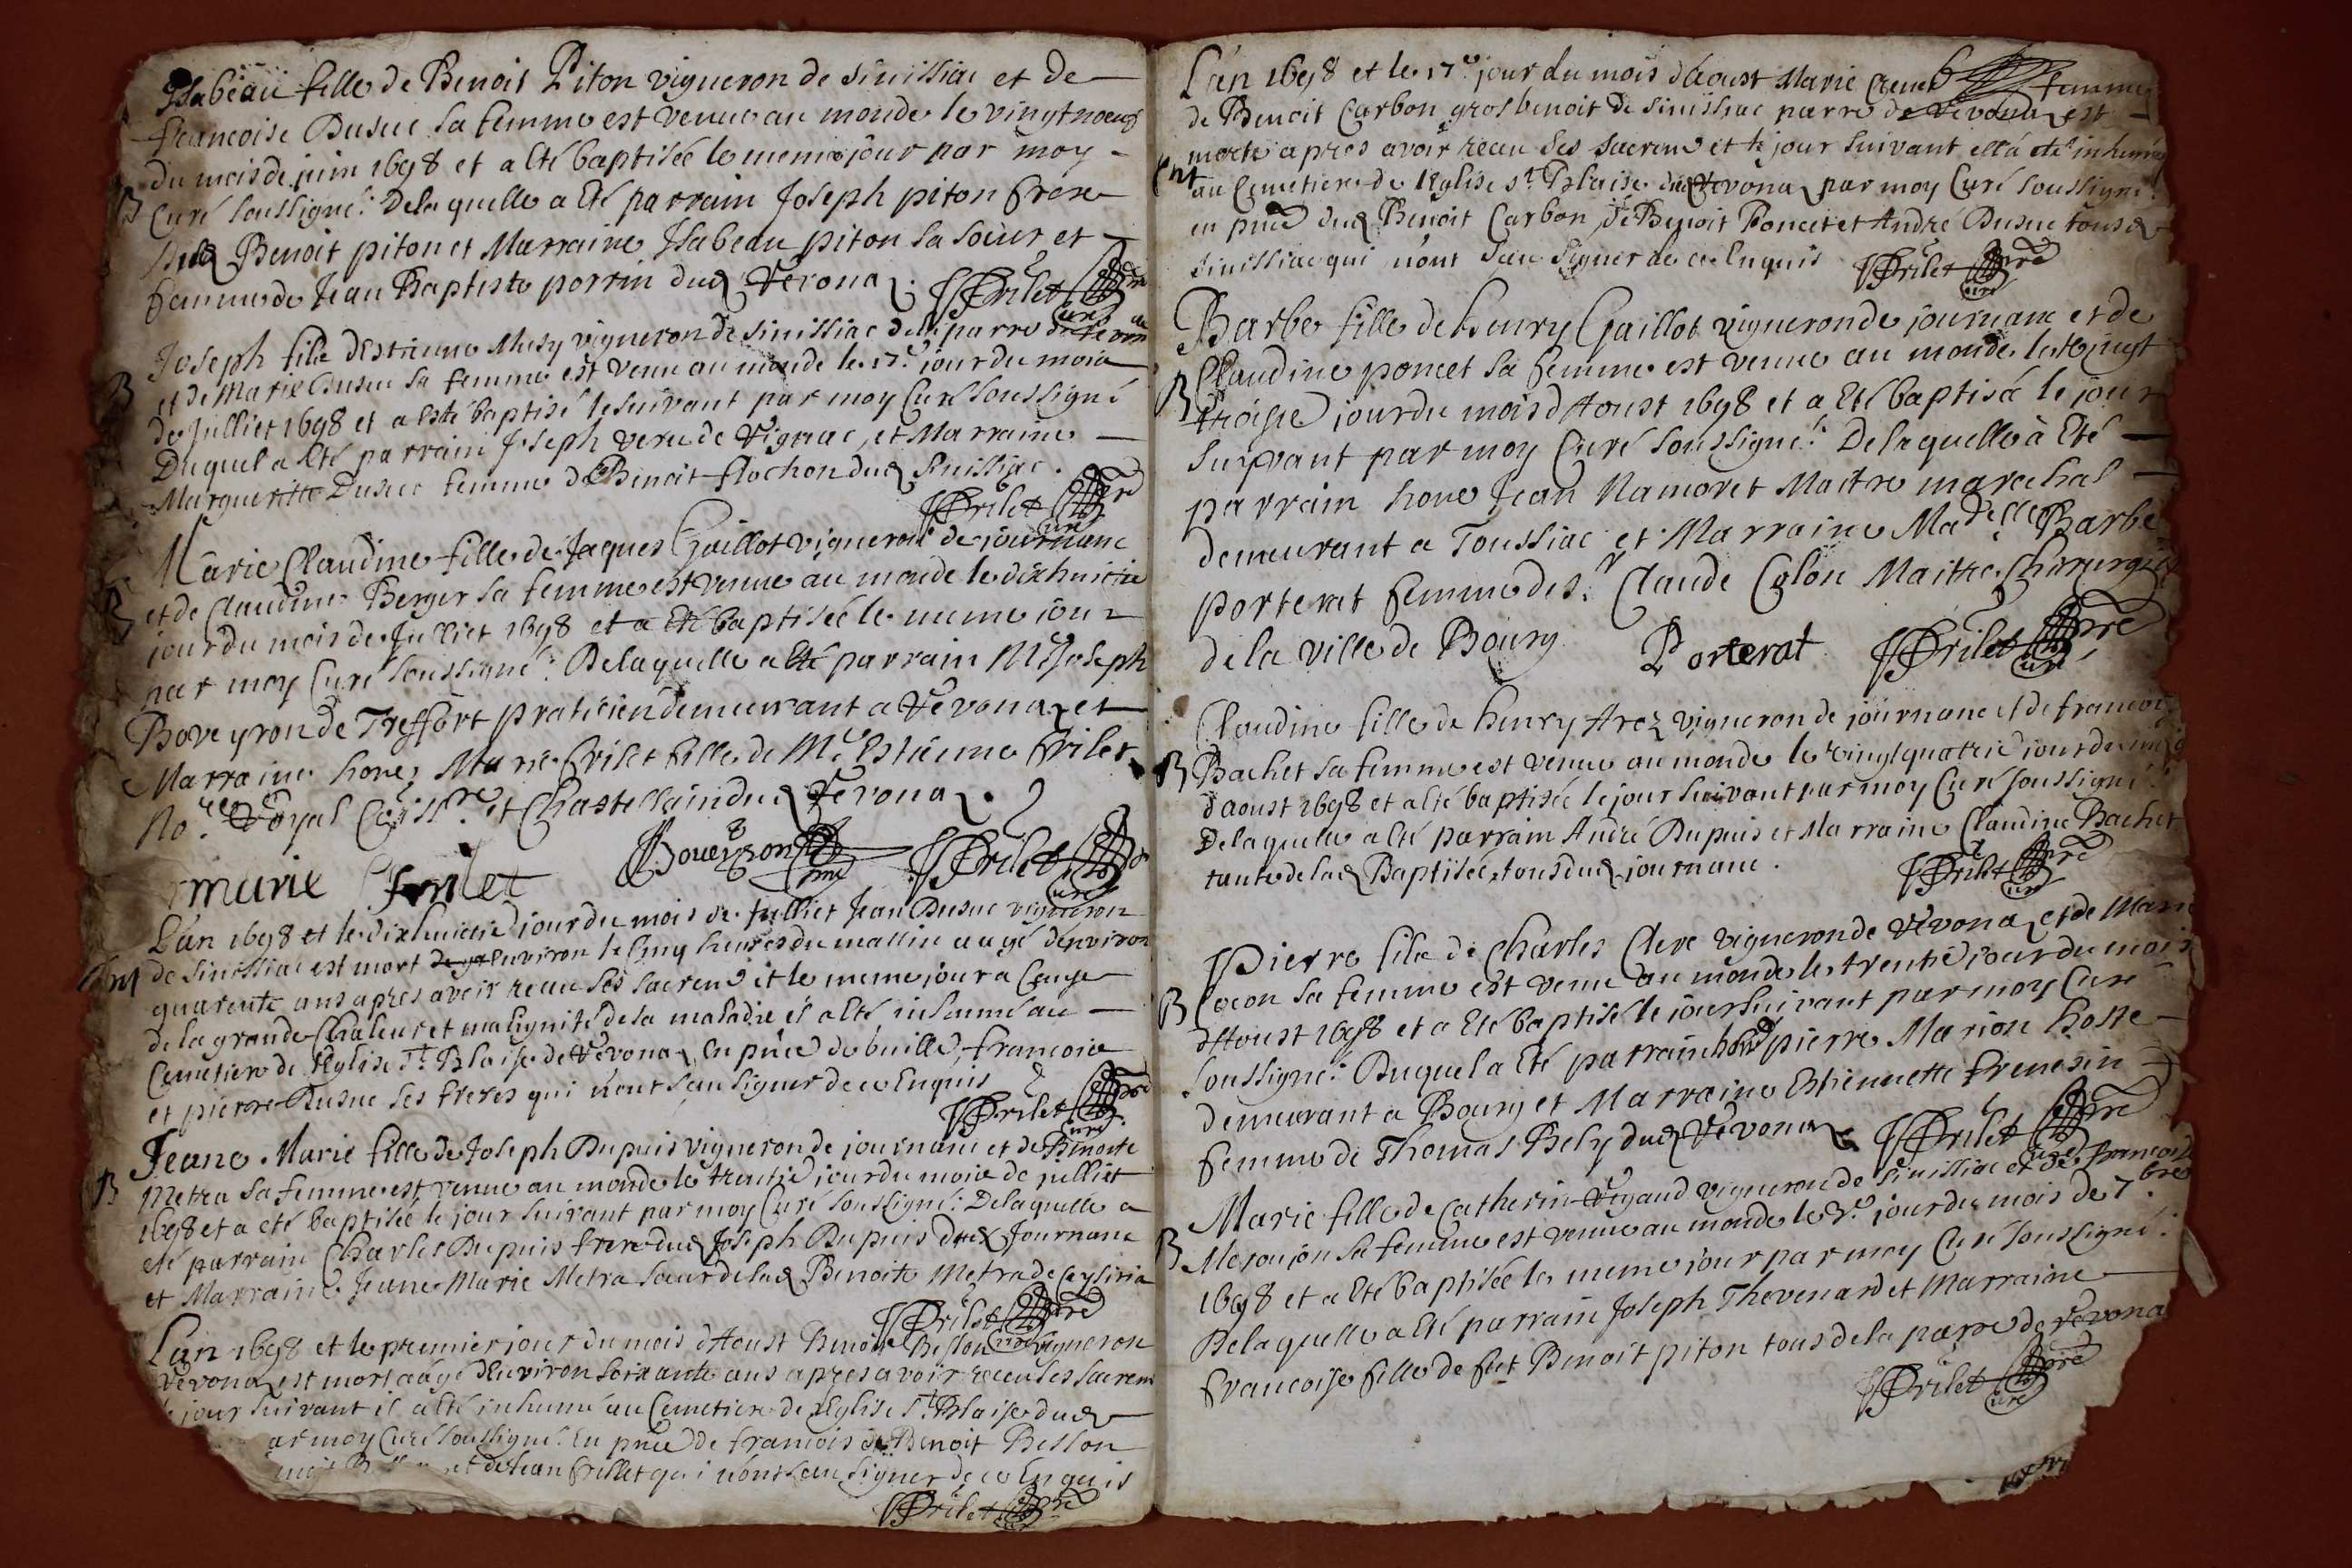 Isabeau fille de Benoit Piton vigneron de Sinissiac et de
francoise Dusuc sa femme est venue au monde le vingtnoeuf
du mois de juin 1698 et a eté baptisée le meme jour par moy
B Curé soussigné. Delaquelle a eté parrain Joseph piton frere
dud Benoit piton et Marraine Isabeau piton sa soeur et
femme de Jean Baptiste perrin dud Revona. Frilet pre curé
Joseph fils d'Estienne Musy vigneron de Sinissiac de la parre de
B et de Marie Dusuc sa femme est venu au monde le 17e jour du mois
de Julliet 1698 et a esté baptisé le suivant par moy Curé soussigné
Duquel a eté parrain Joseph veru de vignac, et Marraine
Margueritte Dusuc femme de Benoit flochon dud Sinissiac.
Frilet pre curé
Marie Claudine fille de Jaques Gaillot vigneron de journanc
B et de Claudine Berger sa femme est venue au monde le dixhuictie
jour du mois de Julliet 1698 et a eté baptisée le meme jour
par moy Curé soussigné. Delaquelle a eté parrain Me Joseph
Boveyron de Treffort praticien demeurant a Revona et
Marraine hone Marie frilet fille de Me Estienne frilet
No.re Royal et Chastellain dud Revona.
marie frilet Boueyron Frilet pre curé
L'an 1698 et le dixhuictie jour du mois de Julliet Jean Dusuc vigneron
Ent de Sinissiac est mort environ le cinq heures du mattin aagé d'environ
quarente ans apres avoir receu ses sacrem et le meme jour a cause
de la grande chaleur et malignité de sa maladie il a eté inhumé au
Cemetiere de l'Eglise St Blaise de Revona, En pnce de francois
et pierre Dusuc ses freres qui n'ont sceu signer de ce Enquis
Frilet pre curé
Jeane Marie fille de Joseph Dupuis vigneron de journanc et de Benoite
B Metra sa femme est venue au monde le trentie jour du mois de julliet
1698 et a eté baptisée le jour suivant par moy Curé soussigné. Delaquelle a
eté parrain Charles Dupuis frere dud Joseph Dupuis dud Journanc
et Marraine Jeane Marie Metra soeur de lad Benoite Metra de Ceysiria
Frilet pre curé
L'an 1698 et le premier jour du mois d'Aoust Benoit Beston vigneron
Revona est mort aagé d'Environ soixante ans apres avoir receu ses sacrem
le jour suivant il a eté inhumé au Cemetiere de l'Eglise St Blaise dud
ar moy Curé soussigné. En pnce de francois de Benoit Beston
et de Jean frillet qui n'ont sceu signer de ce Enquis
Frilet pre curé
L'an 1698 et le 17e jour du mois d'Aoust Marie femme
de Benoit Carbon gros benoit de Sinissiac parre de Revona est
morte apres avoir receu ses sacrem et le jour suivant ell'a eté inhumée
Ent au Cemetiere de l'Eglise St Blaise dud Revona par moy Curé soussigné.
en pnce dud Benoit Carbon, de Benoit Poncet et André Dusuc tous de
Sinissiac qui n'ont sceu signer de ce Enquis Frilet pre curé
Barbe fille de henry Gaillot vigneron de journanc et de
Claudine poncet sa femme est venue au monde le vingt
B troisie jour du mois d'Aoust 1698 et a eté baptisée le jour
suivant par moy Curé soussigné. Delaquelle à eté
parrain hone Jean Namoret Maitre marechal
demeurant a Toussiac et Marraine Madelle Barbe
porterat femme de sr. Claude Colon Maitre Chirurgien
de la ville de Bourg Porterat Frilet pre curé
Claudine fille de henry Arez vigneron de journanc et de francoise
B Bachet sa femme est venue au monde le vingtquatrie jour du mois
d'aoust 1698 et a eté baptisée le jour suivant par moy Curé soussigné.
Delaquelle a eté parrain André Dupuis et Marraine Claudine Bachet
tante de lad Baptisée, tous dud journanc.
Frilet pre curé
Pierre fils de Charles Clerc vigneron de Revona et de Marie
B Cocon sa femme est venu au monde le trentie jour du mois
d'Aoust 1698 et a eté baptisé le jour suivant par moy Curé
soussigné. Duquel a eté parrain hone pierre Marion hoste
demeurant a Bourg et Marraine Estiennette fremesin
femme de Thomas Bely dud Revona. Frilet pre curé
Marie fille de Catherin Rigaud vigneron de Sinissiac et de francoise
B sa femme est venue au monde le jour du mois de 7.bre
1698 et a eté baptisée le meme jour par moy Curé soussigné.
Delaquelle a eté parrain Joseph Thevenard et Marraine
francoise fille de fut Benoit piton tous de la parre de Revona
Frilet pre curé